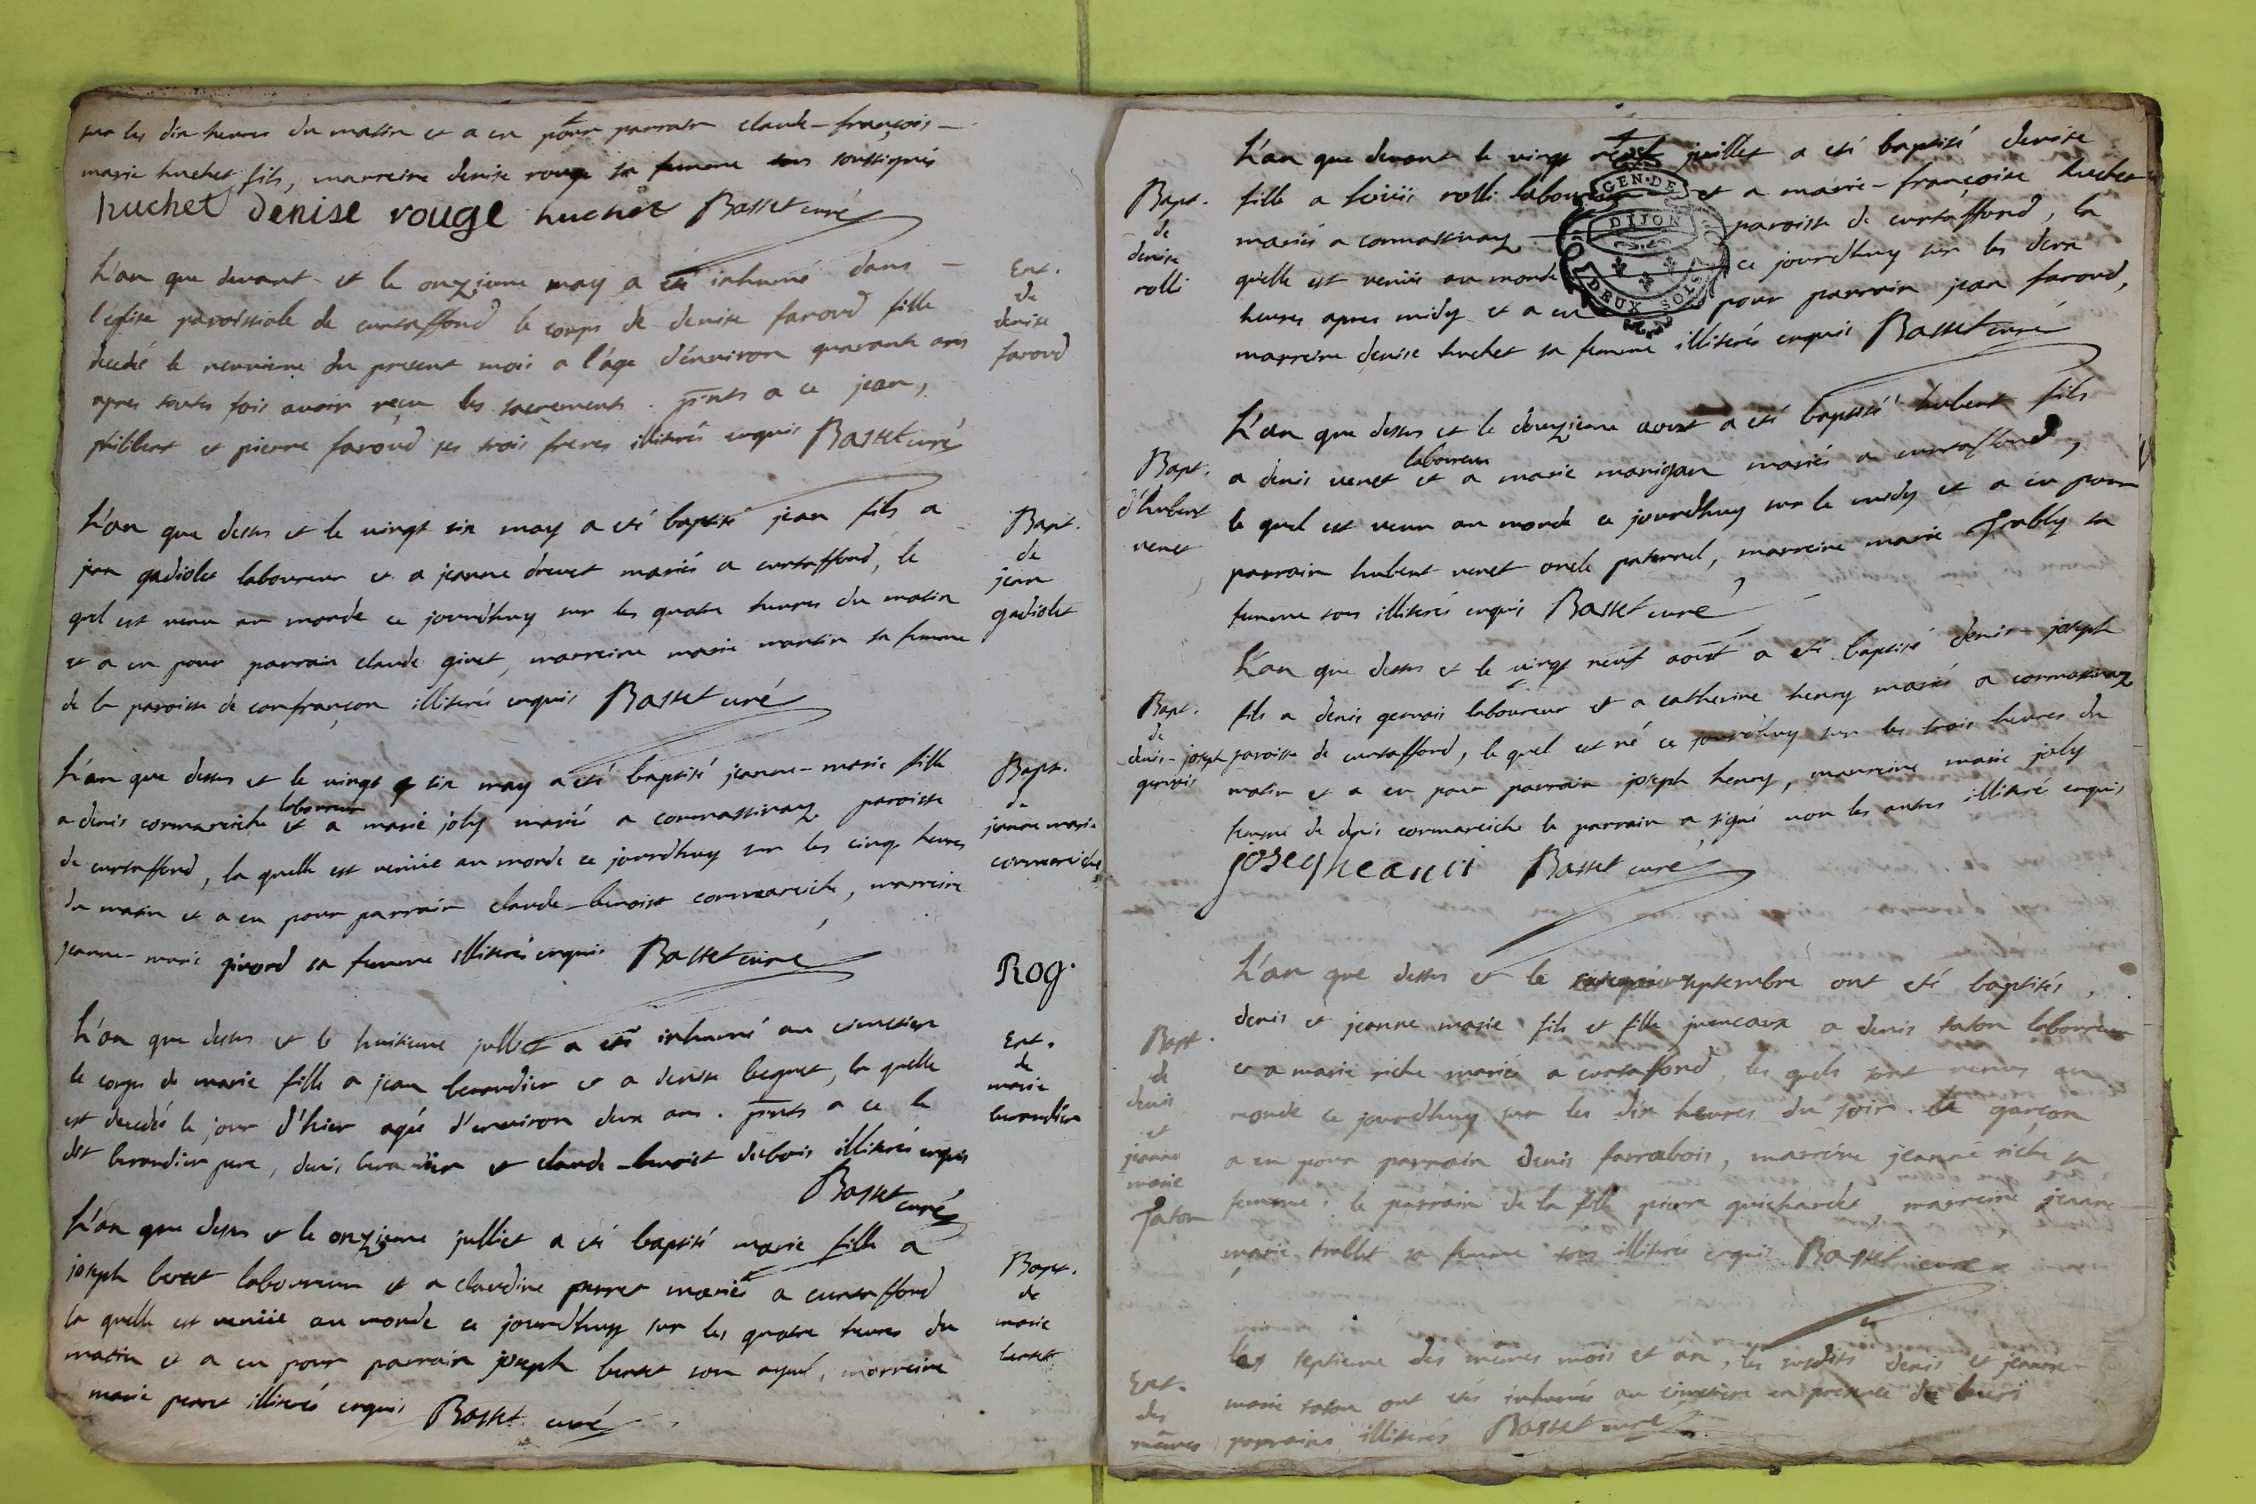 sur les dix heures du matin et a eu pour parrain claude-françois-
marie huchet fils, marreine denise rouge sa femme soussignés
huchet denise rouge huchet Basset curé
L'an que devant et le onzieme may a été inhumé dans
l'église paroissiale de curtaffond le corps de denise faroud fille
decedé le neuvieme du present mois a l'âge d'environ quarante ans
apres toutes fois avoir reçu les sacrements. pnts a ce jean,
philibert et pierre faroud ses trois freres illiterés enquis Basset curé
Ent.
de
denise
faroud
L'an que dessus et le vingt six may a eté baptisé jean fils a
jean gadiolet laboureur et a jeanne drevet mariés a curtaffond, le
quel est venu au monde ce jourdhuy sur les quatre heures du matin
et a eu pour parrain claude givet, marreine marie martin sa femme
de la paroisse de confrançon illiterés enquis Basset curé
Bapt.
de
jean
gadiolet
L'an que dessus et le vingt six may a eté baptisé jeanne-marie fille
a denis cormareiche laboureur et a marie joly marié a cormassinay paroisse
de curtaffond, la quelle est venüe au monde ce jourdhuy sur les cinq heures
du matin et a eu pour parrain claude-benoist cormareiche, marreine
jeanne-marie givord sa femme illiterés enquis Basset curé
Bapt.
de
jeanne marie
cormareiche
Rog.
L'an que dessus et le huitieme julliet a eté inhumé au cimetiere
le corps de marie fille a jean berardier et a denise becquet, la quelle
est decedée le jour d'hier agée d'environ deux ans. pnts a ce le
dit berardier pere, denis berardier et claude-benoist debois illiterés enquis
Basset curé
Ent.
de
marie
berardier
L'an que dessus et le onzieme julliet a eté baptisé marie fille a
joseph bertet laboureur et a claudine perret mariés a curtaffond
la quelle est venüe au monde ce jourdhuy sur les quatre heures du
matin et a eu pour parrain joseph bertet son ayeul, marreine
marie perret illiterés enquis Basset curé
Bapt.
de
marie
bertet
L'an que devant le vingt juillet a eté baptisé denise
fille a loüis rolli laboureur et a marie-françoise huchet
mariés a cormassinay paroisse de curtaffond, la
quelle est venüe au monde ce jourdhuy sur les deux
heures apres midy et a eu pour parrain jean faroud,
marreine denise huchet sa femme illiterés enquis Basset curé
GEN. DE
DIJON
DEUX SOLS
Bapt.
de
denise
rolli
L'an que dessus et le douzieme aoust a eté baptisé hubert fils
a denis venet laboureur et a marie marigan mariés a curtaffond,
le quel est venu au monde ce jourdhuy sur le midy et a eu pour
parrain hubert venet oncle paternel, marreine marie sa
femme tous illiterés enquis Basset curé
Bapt.
d'hubert
venet
L'an que dessus et le vingt neuf aoust a eté baptisé denis-joseph
fils a denis gervais laboureur et a catherine henry mariés a cormassinay
paroisse de curtaffond, le quel est né ce jourdhuy sur les trois heures du
matin et a eu pour parrain joseph henry, marreine marie joly
femme de denis cormareiche le parrain a signé non les autres illiteré enquis
Basset curé
Bapt.
de
denis-joseph
gervais
L'an que dessus et le septembre ont eté baptisés,
denis et jeanne marie fils et fille jumeaux a denis taton laboureur
et a marie riche mariés a curtaffond, les quels sont venus au
monde ce jourdhuy sur les dix heures du soir. le garçon
a eu pour parrain denis farrabois, marréine jeanne riche sa
femme. le parrain de la fille pierre guichardet, marreine jeanne
marie trablet sa femme tous illiterés enquis Basset curé
Bapt.
de
denis
et
jeanne
marie
taton
Les septieme des mêmes mois et an, les susdits denis et jeanne-
marie taton ont etés inhumés au cimetiere en presence de leurs
parrains illiterés Basset curé
Ent.
des
mêmes